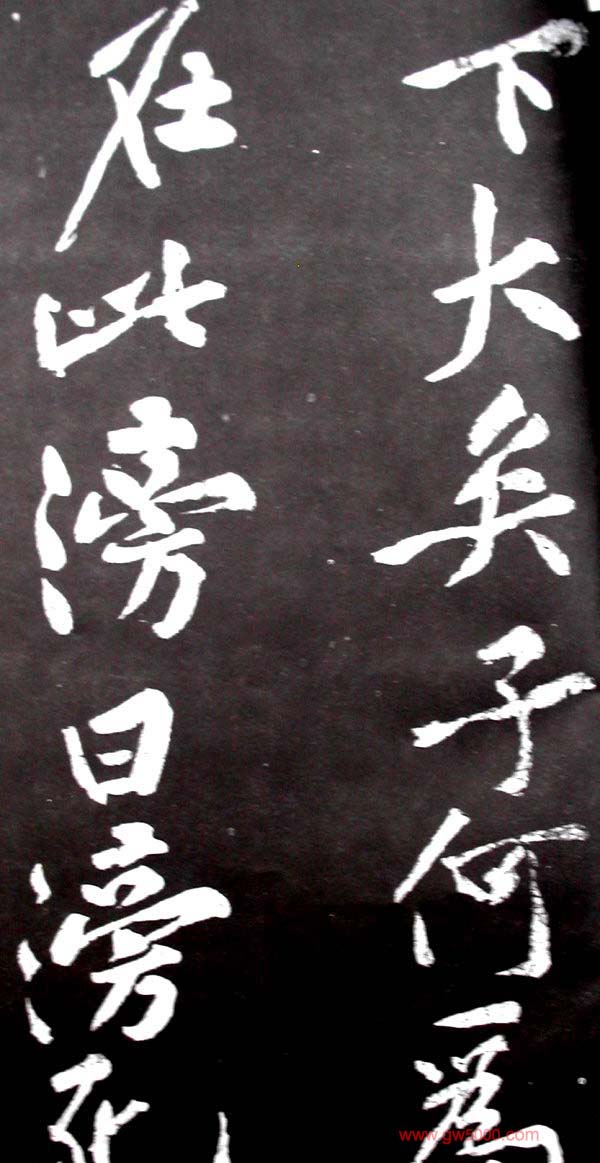 下大矣子何為
在此滂曰滂死
www.gw5000.com